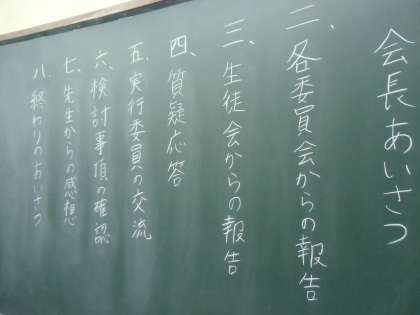 会長あいさつ
二、各委員会からの報告
三、生徒会からの報告
四、質疑応答
五、実行委員の交流
六、検討事項の確認
七、先生からの感想
八、終わりのあいさつ